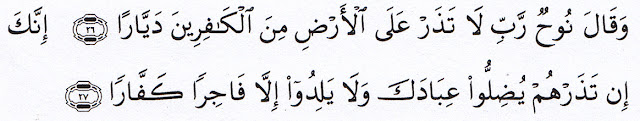 وَقَالَ نُوحٌ رَّبِّ لَا تَذَرْ عَلَى ٱلْأَرْضِ مِنَ ٱلْكَٰفِرِينَ دَيَّارًا ۝٢٦ إِنَّكَ
إِن تَذَرْهُمْ يُضِلُّوا۟ عِبَادَكَ وَلَا يَلِدُوٓا۟ إِلَّا فَاجِرًا كَفَّارًا ۝٢٧